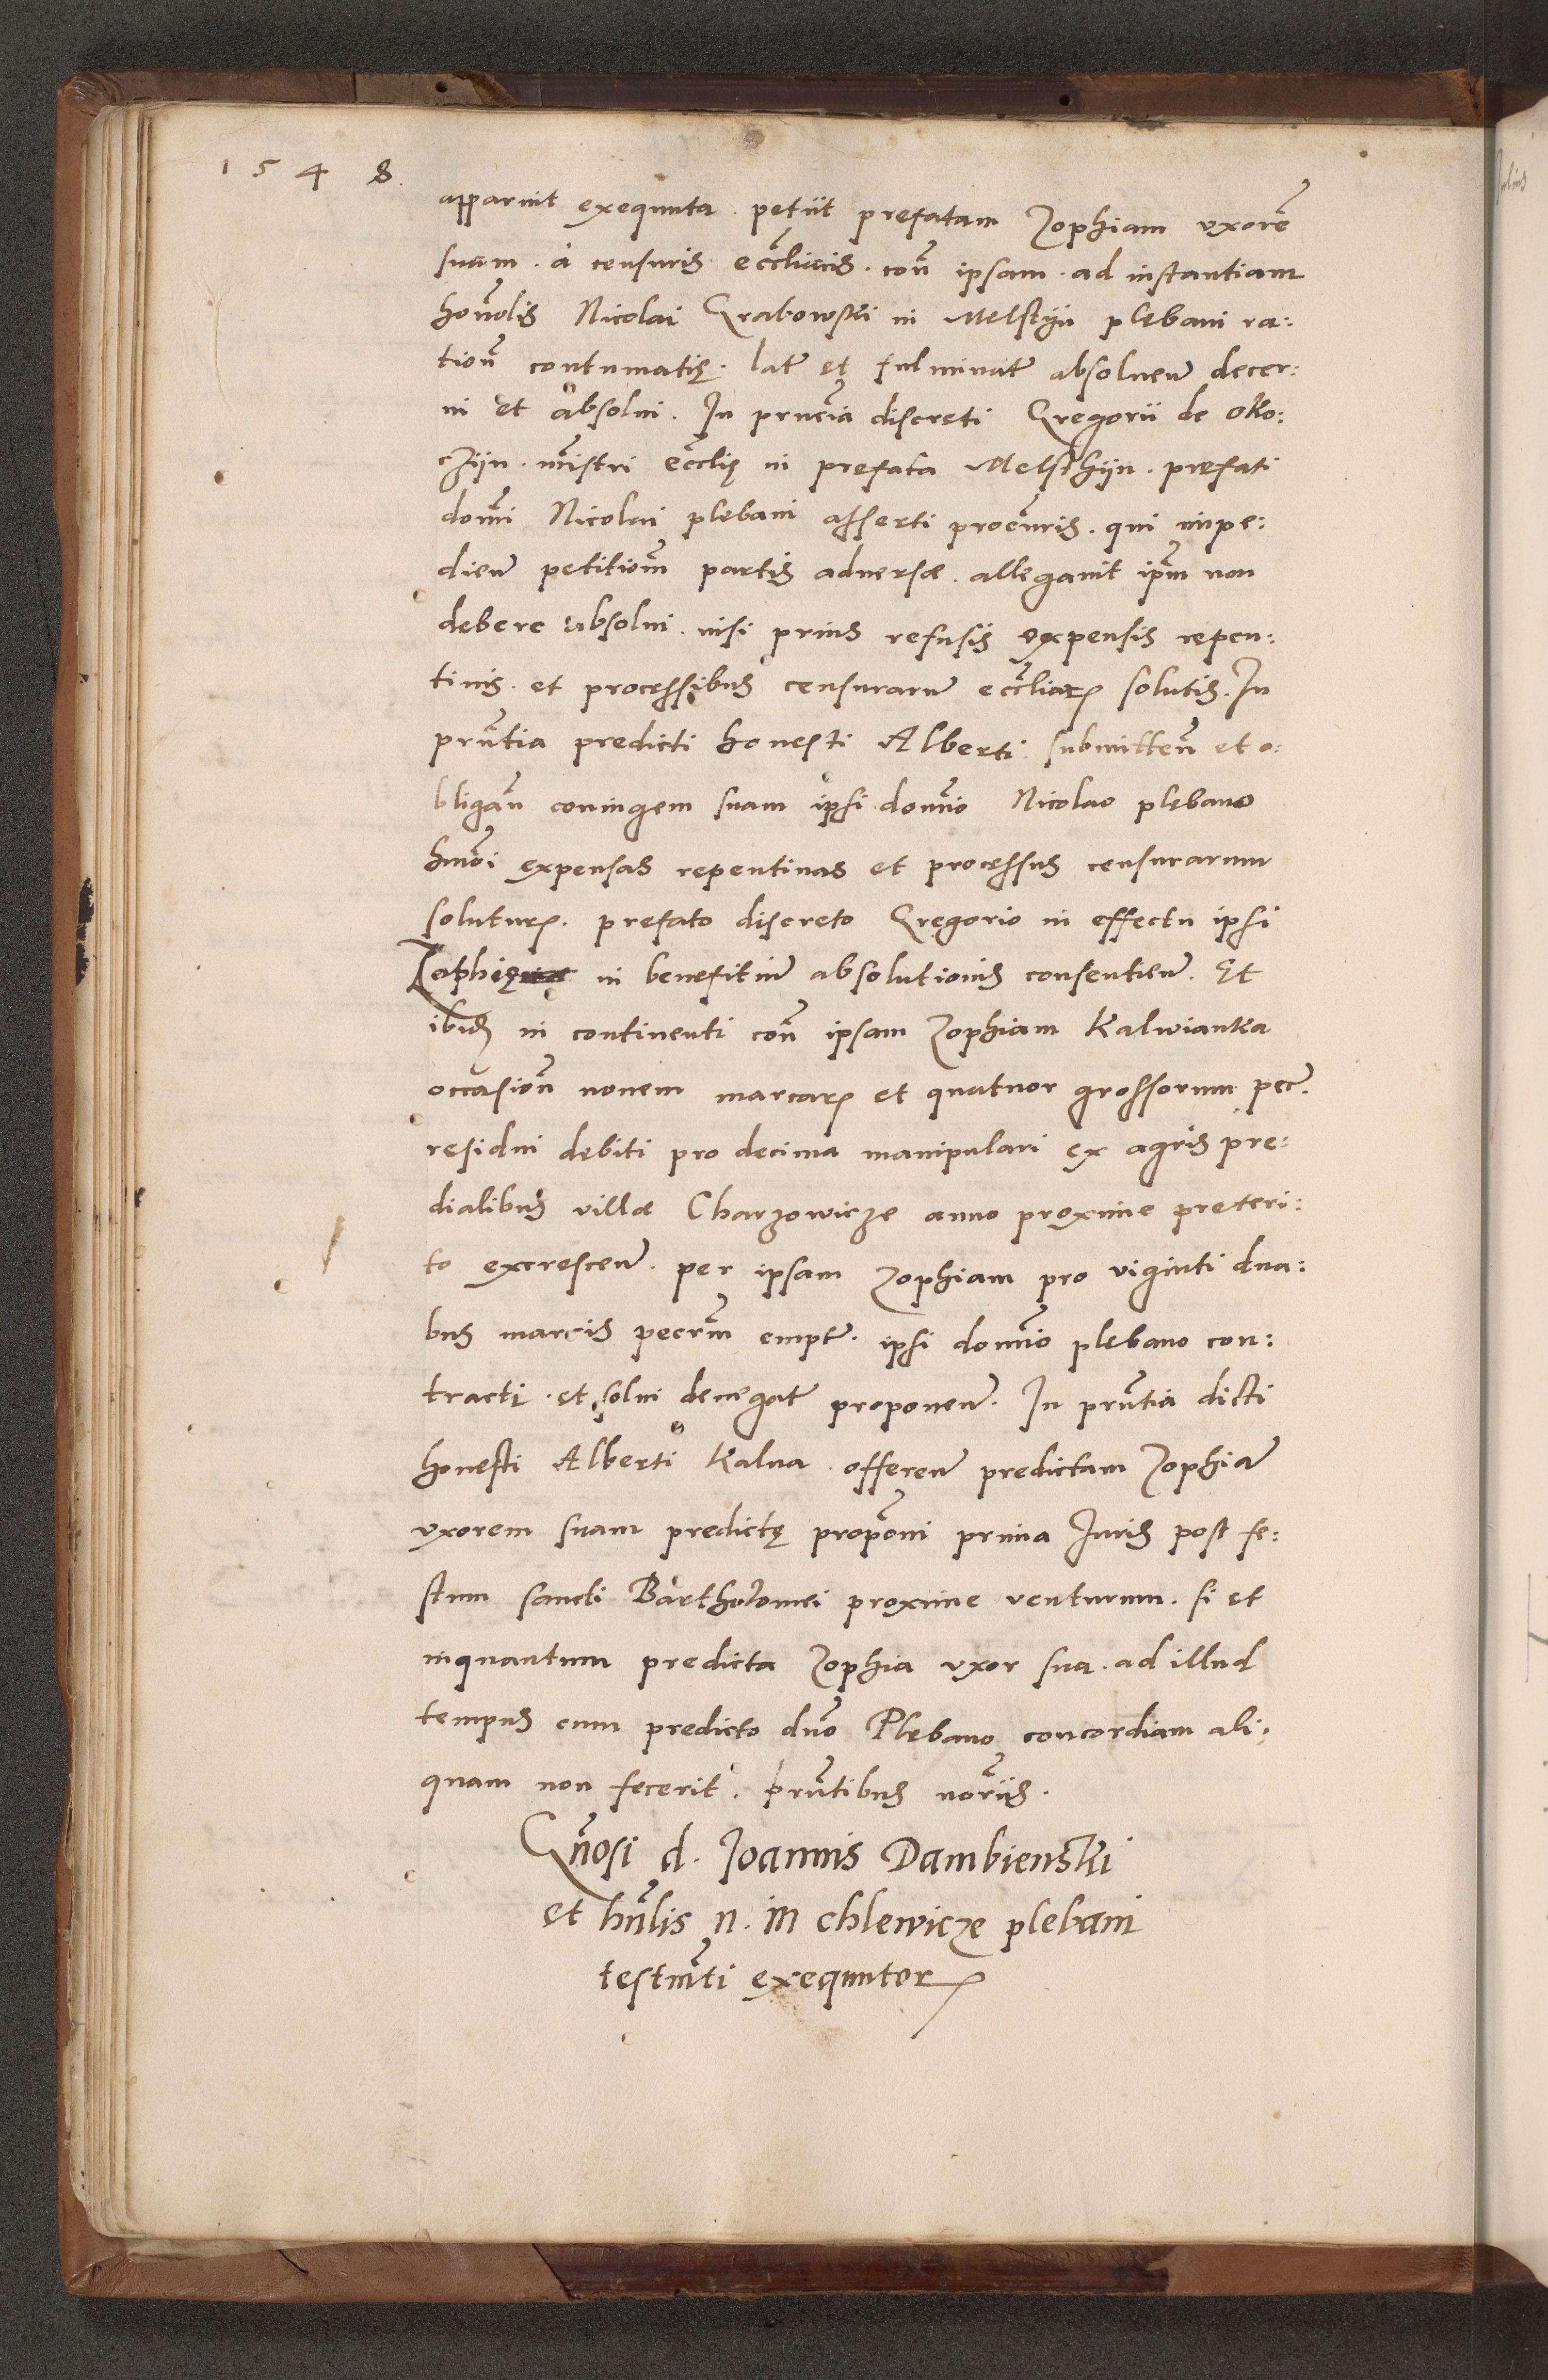 1548.
apparuit exequuta. petiit prefatam Zophiam uxorē
suam. a censuris eccl̄iacis. con̄ ipsam. ad instantiam
honōlis Nicolai Grabowski in Melstijn plebani ra:
tion̄ contumatię. lat̄ et fulminat̄ absoluen̄ decer:
ni et absolui. In prn̄cia discreti Gregorii de Oko:
czijn. mīstri eccl̄ię in prefata Melsthijn. prefati
domī Nicolai plebani asserti procūris. qui impe:
dien̄ petitiom̄ partis aduersæ. allegauit ip̄m non
debere absolui. nisi prius refusis expensis repen:
tinis. et processibus censurarū eccl̄iarꝝ solutis. In
prn̄tia predicti honesti Alberti submitten̄ et o:
bligan̄ coniugem suam ipsi domīo Nicolao plebano
hmōi expensas repentinas et processus censurarum
soluturꝝ. prefato discreto Gregorio in effectu ipsi
Zophię in benefitiū absolutionis consentien̄. Et
ibidꝫ in continenti con̄ ipsam Zophiam Kalwianka
occasion̄ nouem marcarꝝ et quatuor grossorum pec̄.
residui debiti pro decima manipulari ex agris pre:
dialibus villæ Charzowicze anno proxime preteri:
to excrescen̄. per ipsam Zophiam pro viginti dua:
bus marcis pecr̄m empt̄. ipsi domīo plebano con:
tracti. et solui denegat̄ proponen̄. In prn̄tia dicti
honesti Alberti Kalua. offeren̄ predictam Zophiā
uxorem suam predictę propōni prima Iuris post fe:
stum sancti Bartholomei proxime venturum. si et
inquantum predicta Zophia uxor sua. ad illud
tempus cum predicto dn̄o Plebano concordiam ali:
quam non fecerit. prn̄tibus nor̄iis.
Gn̄osi d. Ioannis Dambienski
et hn̄lis n. in chlewicze plebani
testmn̄ti exequutorꝝ